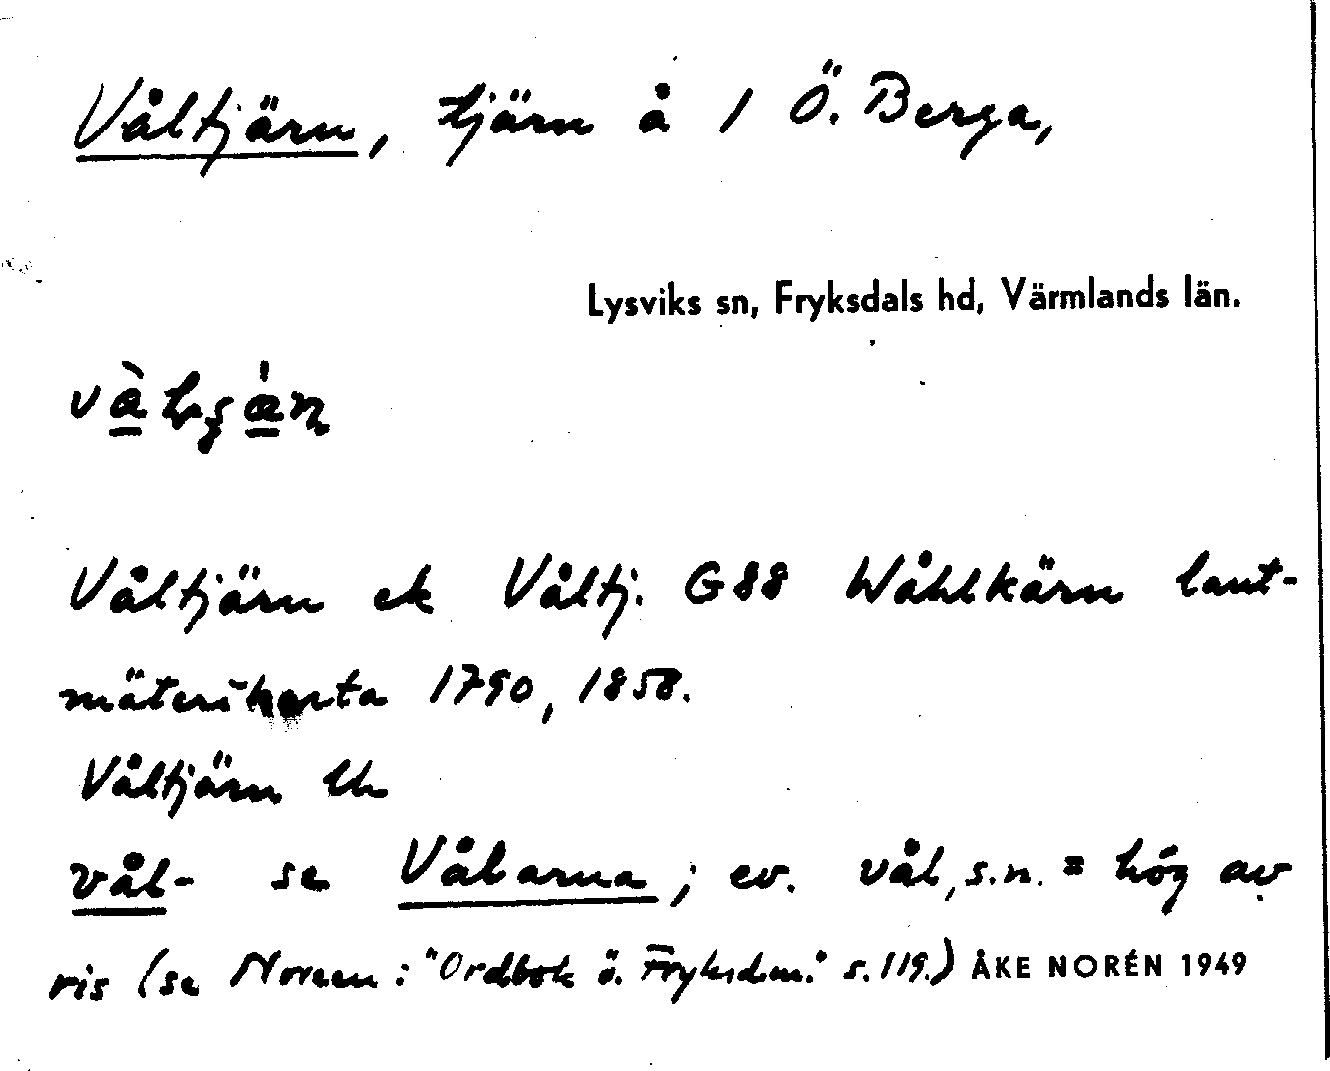 Våltjärn, tjärn å 1 Ö. Berga,
Lysviks sn, Fryksdals hd, Värmlands län.
Våltjärn ek Våltj. G88 Wåhlkärn lant-
mäterikarta 1790, 1858.
Våltjärn Uk
vål- se Vålarna; ev. vål, s.n. = hög av
ris (se Noreen: "Ordbok ö. Fryksdm." s. 119.) ÅKE NORÉN 1949